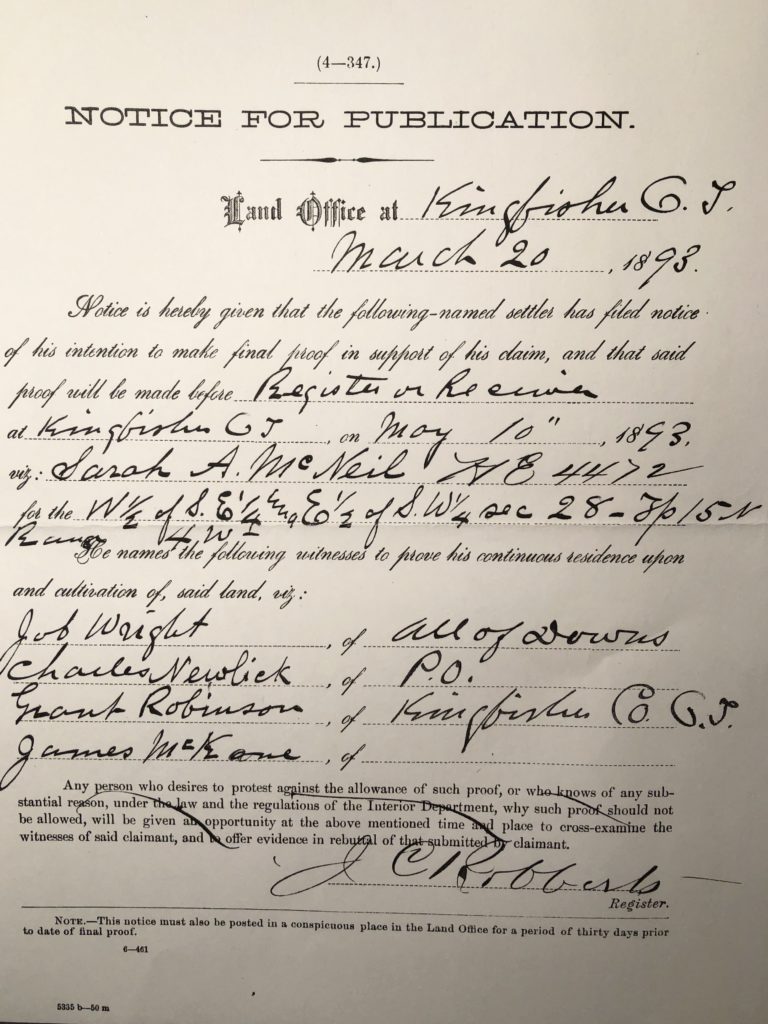 (4—347.)
NOTICE FOR PUBLICATION.
Land Office at Kingfisher O. T.
March 20, 1893.
Notice is hereby given that the following-named settler has filed notice
of his intention to make final proof in support of his claim, and that said
proof will be made before Register or Receiver
at Kingfisher O T, on May 10", 1893.
viz: Sarah A. McNeil HE 4472
for the W½ of S. E¼ and E½ of S. W¼ sec 28 - Tp 15 N
Range 4 W I
He names the following witnesses to prove his continuous residence upon
and cultivation of, said land, viz:
Job Wright, of All of Downs
Charles Newlick, of P.O.
Grant Robinson, of Kingfisher Co. O. T.
James McKane, of
Any person who desires to protest against the allowance of such proof, or who knows of any sub-
stantial reason, under the law and the regulations of the Interior Department, why such proof should not
be allowed, will be given an opportunity at the above mentioned time and place to cross-examine the
witnesses of said claimant, and to offer evidence in rebuttal of that submitted by claimant.
J C Robberts
Register.
NOTE.—This notice must also be posted in a conspicuous place in the Land Office for a period of thirty days prior
to date of final proof.
6—461
5335 b—50 m